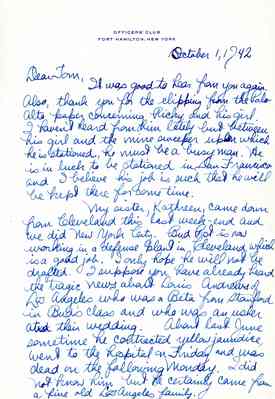 OFFICERS CLUB
FORT HAMILTON, NEW YORK
October 1, 1942
Dear Tom,
It was good to hear from you again.
Also, thank you for the clipping from the Palo
Alto paper concerning Richy and his girl.
I haven't heard from him lately but between
his girl and the mine sweeper upon which
he is stationed, he must be a busy man. He
is in luck to be stationed in San Francisco
and I believe his job is such that he will
be kept there for some time.
My sister, Kathleen, came down
from Cleveland this last week-end and
we did New York City. Bud is now
working in a defense plant in Cleveland which
is a good job. I only hope he will not be
drafted. I suppose you have already heard
the tragic news about Louis Andrews of
Los Angeles who was a Beta from Stanford
in Bud's class and who was an usher
at his wedding. About last June
sometime he contracted yellow jaundice,
went to the hospital on Friday and was
dead on the following Monday. I did
not know him but he certainly came from
a fine old Los Angeles family.